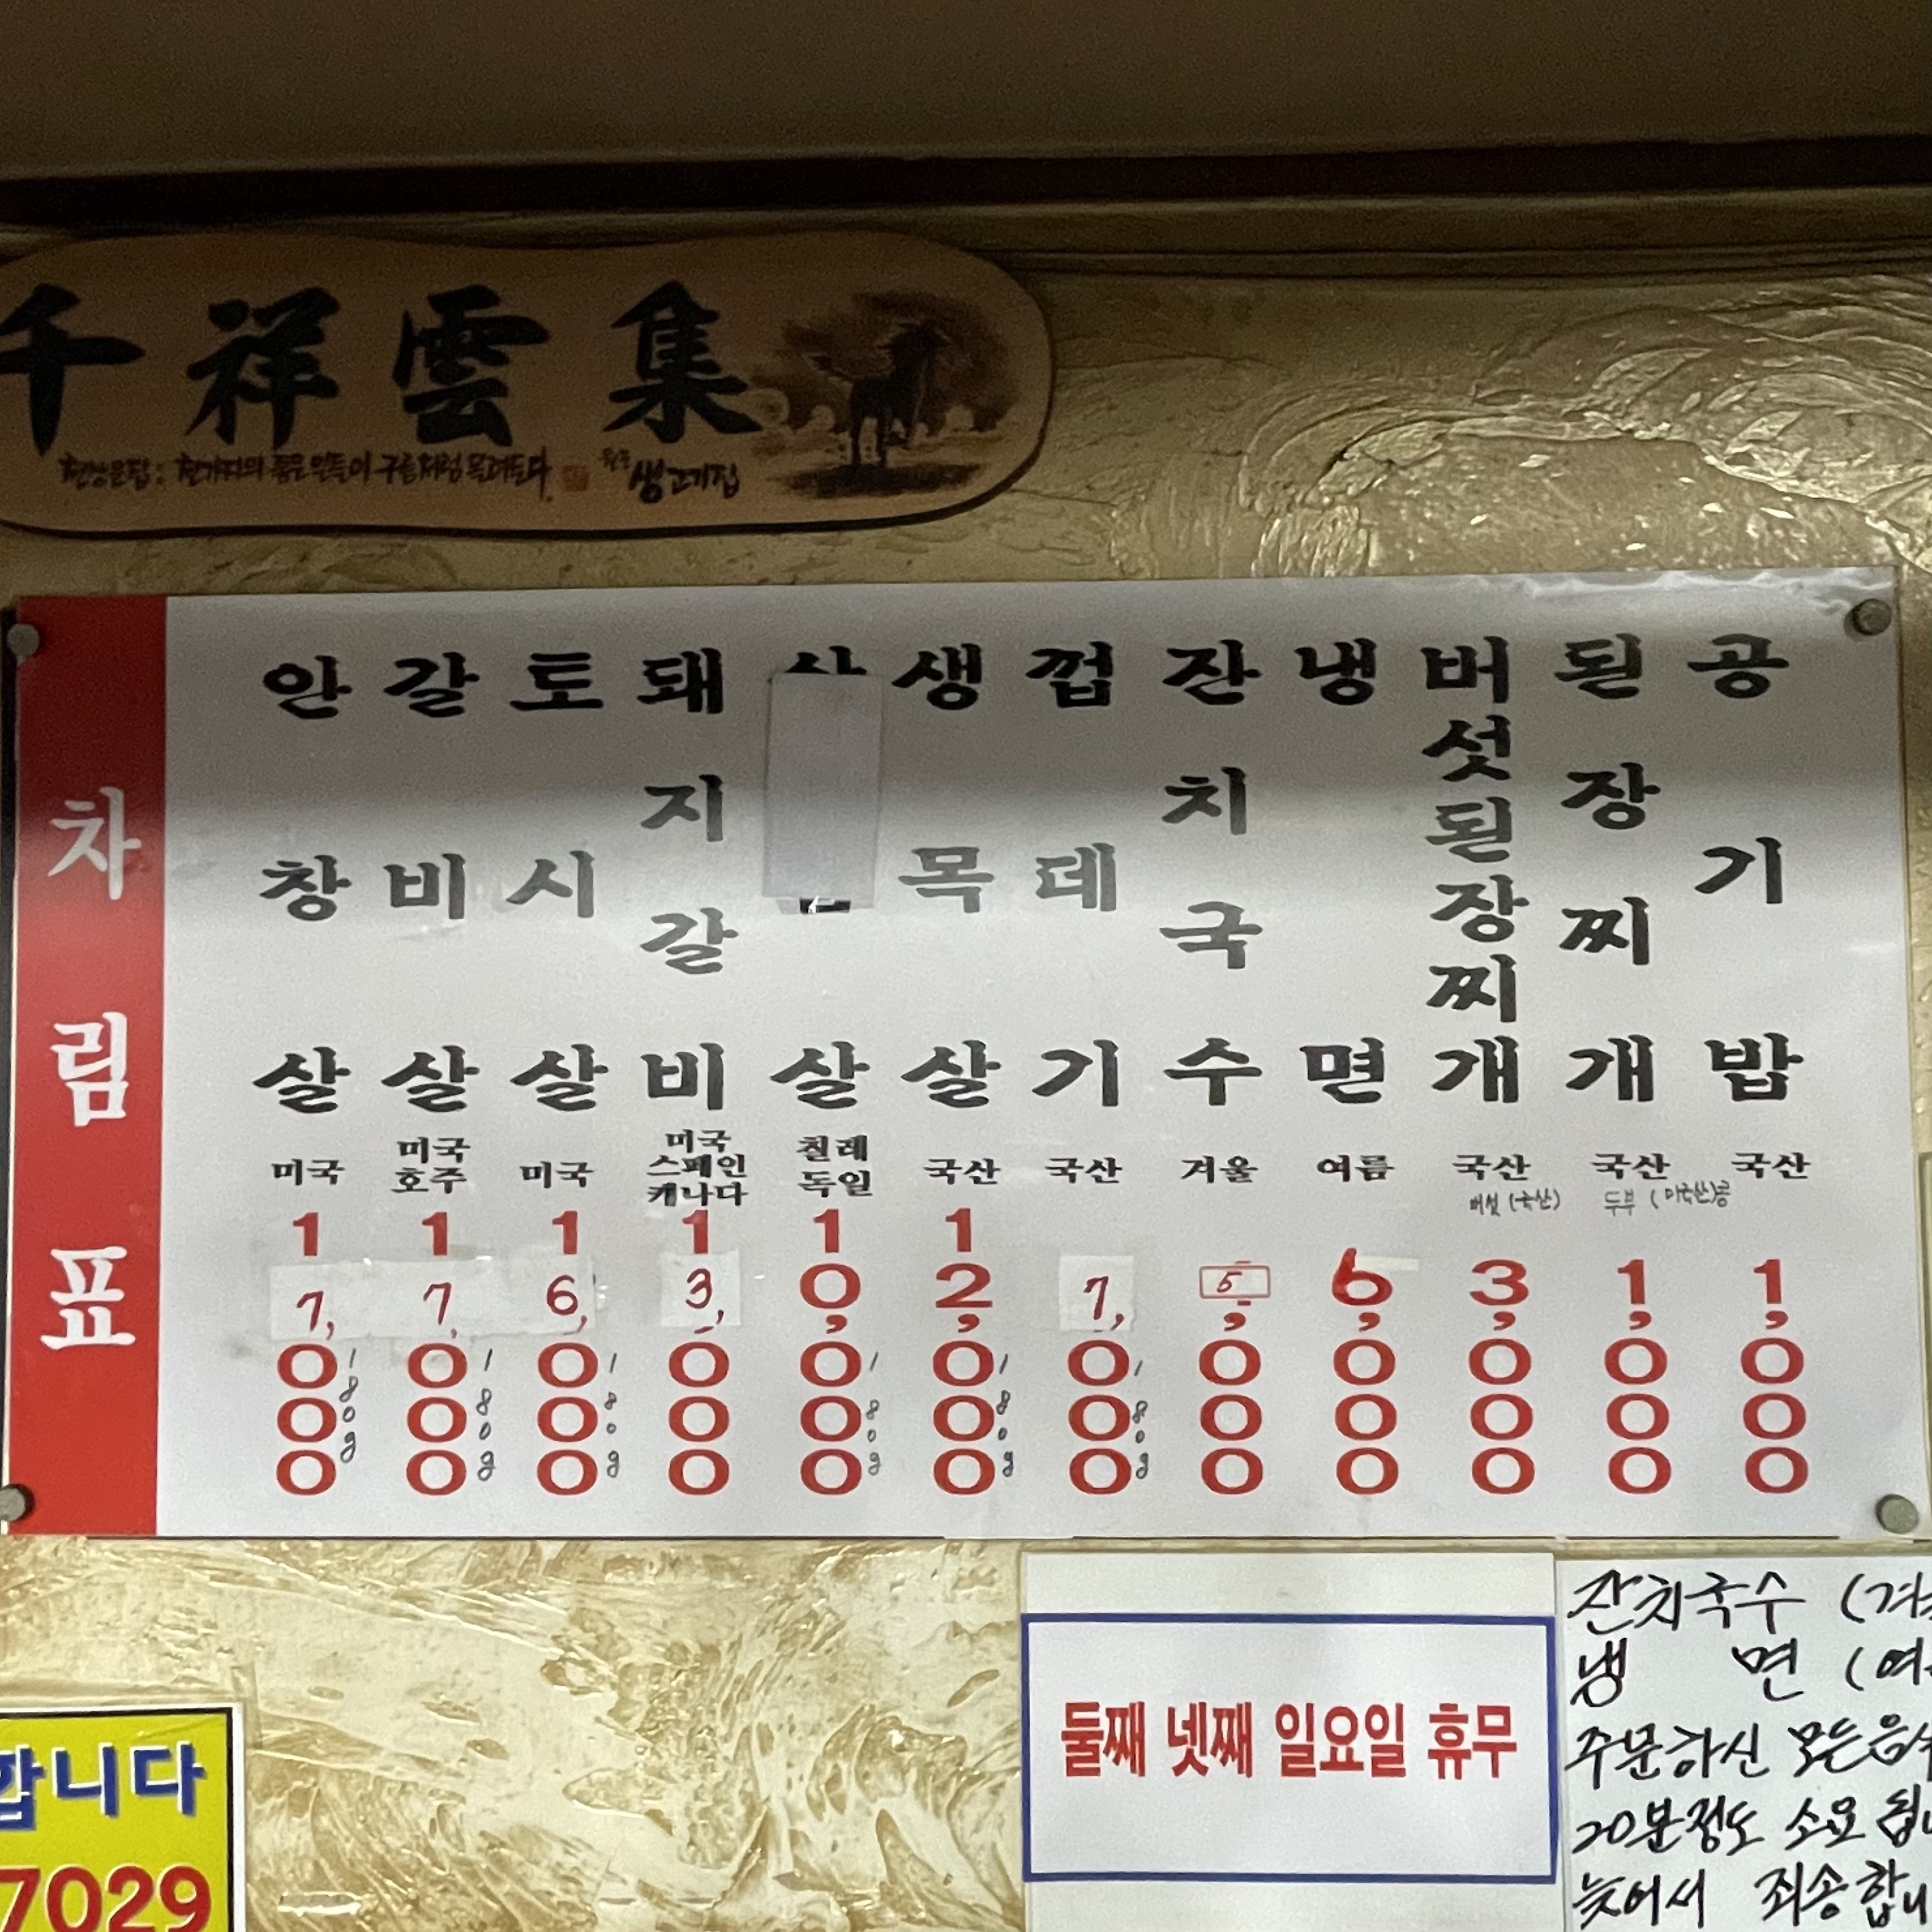 千祥雲集
천상운집: 천가지의 좋은일들이 구름처럼 몰려든다.
생고기집
차림표
안창살 미국 17,000 180g
갈비살 미국 호주 17,000 180g
토시살 미국 16,000 180g
돼지갈비 미국 스페인 캐나다 13,000
살 칠레 독일 10,000 180g
생목살 국산 12,000 180g
껍데기 국산 7,000 180g
잔치국수 겨울 5,000
냉면 여름 6,000
버섯된장찌개 국산 버섯(국산) 3,000
된장찌개 국산 두부(미국산)콩 1,000
공기밥 국산 1,000
둘째 넷째 일요일 휴무
잔치국수 (겨
냉 면 (여
주문하신 모든음
20분정도 소요 됩
늦어서 죄송합니
합니다
7029